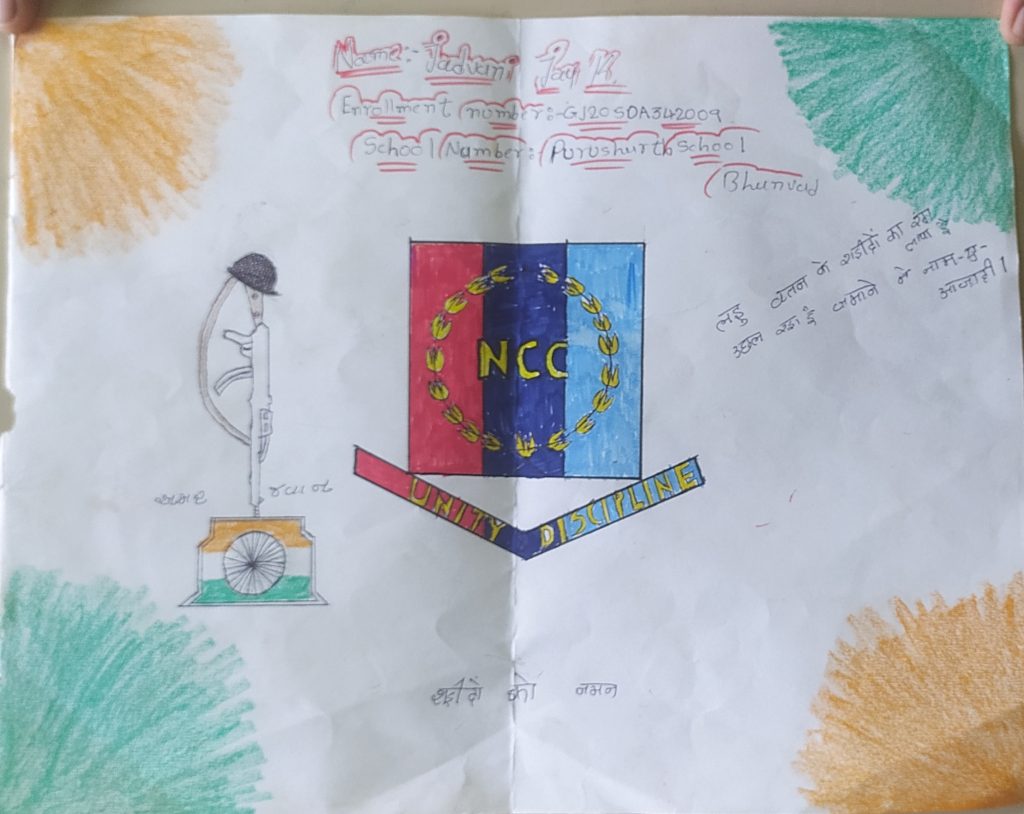 Name:- Jadvani Jay K.
Enrollment number:-GJ20SDA342009
School Number: Purushurth School
Bhanvad
लहु वतन के शहीदों का रंग लाया है
उछल रहा है जमाने में नाम-ए-
आजादी।
NCC
UNITY DISCIPLINE
અમર જવાન
शहीदों को नमन